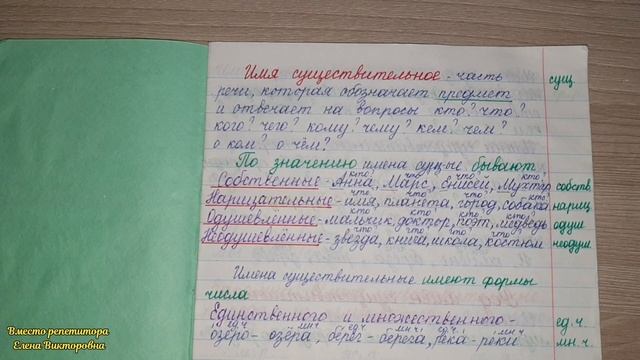 Имя существительное - часть сущ.
речи, которая обозначает предмет
и отвечает на вопросы кто? что?
кого? чего? кому? чему? кем? чем?
о ком? о чём?
По значению имена сущ-ые бывают
кто? что? что? кто?
Собственные - Анна, Марс, Енисей, Мухтар собств.
что что что кто
Нарицательные - имя, планета, город, собака нариц.
кто кто кто кто?
Одушевлённые - мальчик, доктор, поэт, медведь одуш.
что? что? что? что?
Неодушевлённые - звезда, книга, школа, костюм неодуш.
Имена существительные имеют формы
числа
Единственного и множественного - ед.ч.
ед.ч мн.ч ед.ч мн.ч ед.ч. мн.ч
озеро - озёра, берег - берега, река - реки мн.ч.
Вместо репетитора
Елена Викторовна